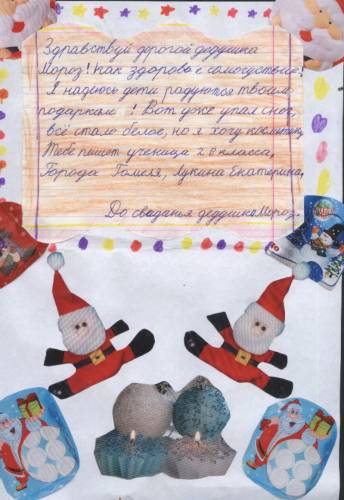 Здравствуй дорогой дедушка
Мороз! Как здоровье самочуствие?
Я надеюсь дети радуются твоим
подаркам! Вот уже упал снег,
всё стало белое, но я хочу
Тебе пишет ученица 2 класса,
Города Гомеля, Лукина Екатерина,
До свиданья дедушка Мороз.